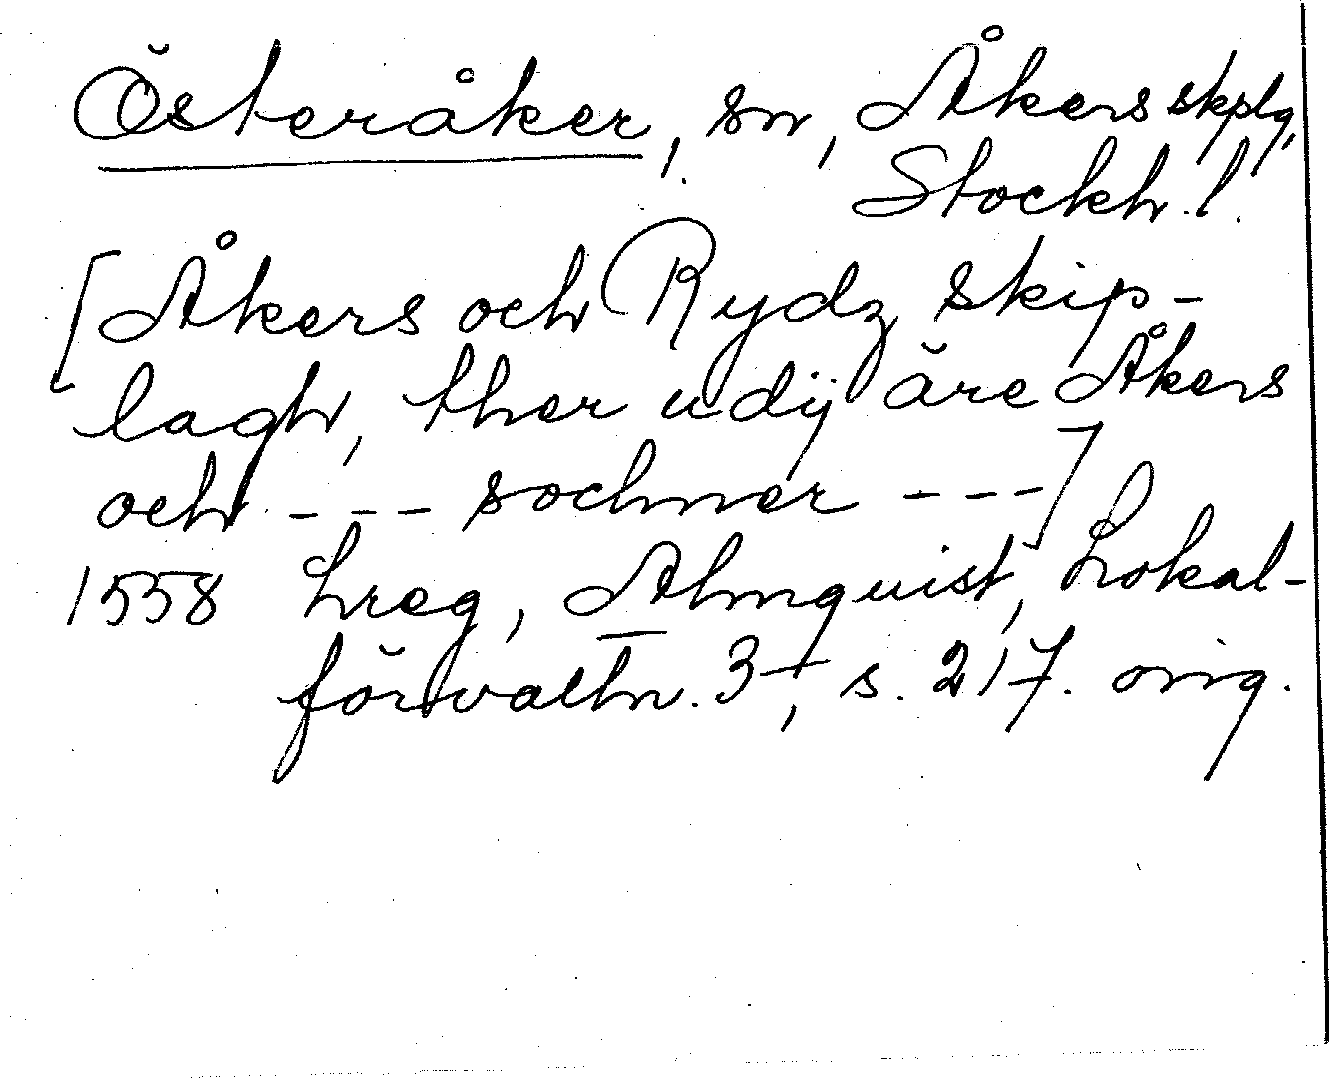 Österåker, sn, Åkers skplg,
Stockh. l.
[Åkers och Rydz skip-
lagh, ther udij äre Åkers
och --- sochner ---]
1558 Lreg, Almquist, Lokal-
förvaltn. 3, s. 217. orig.